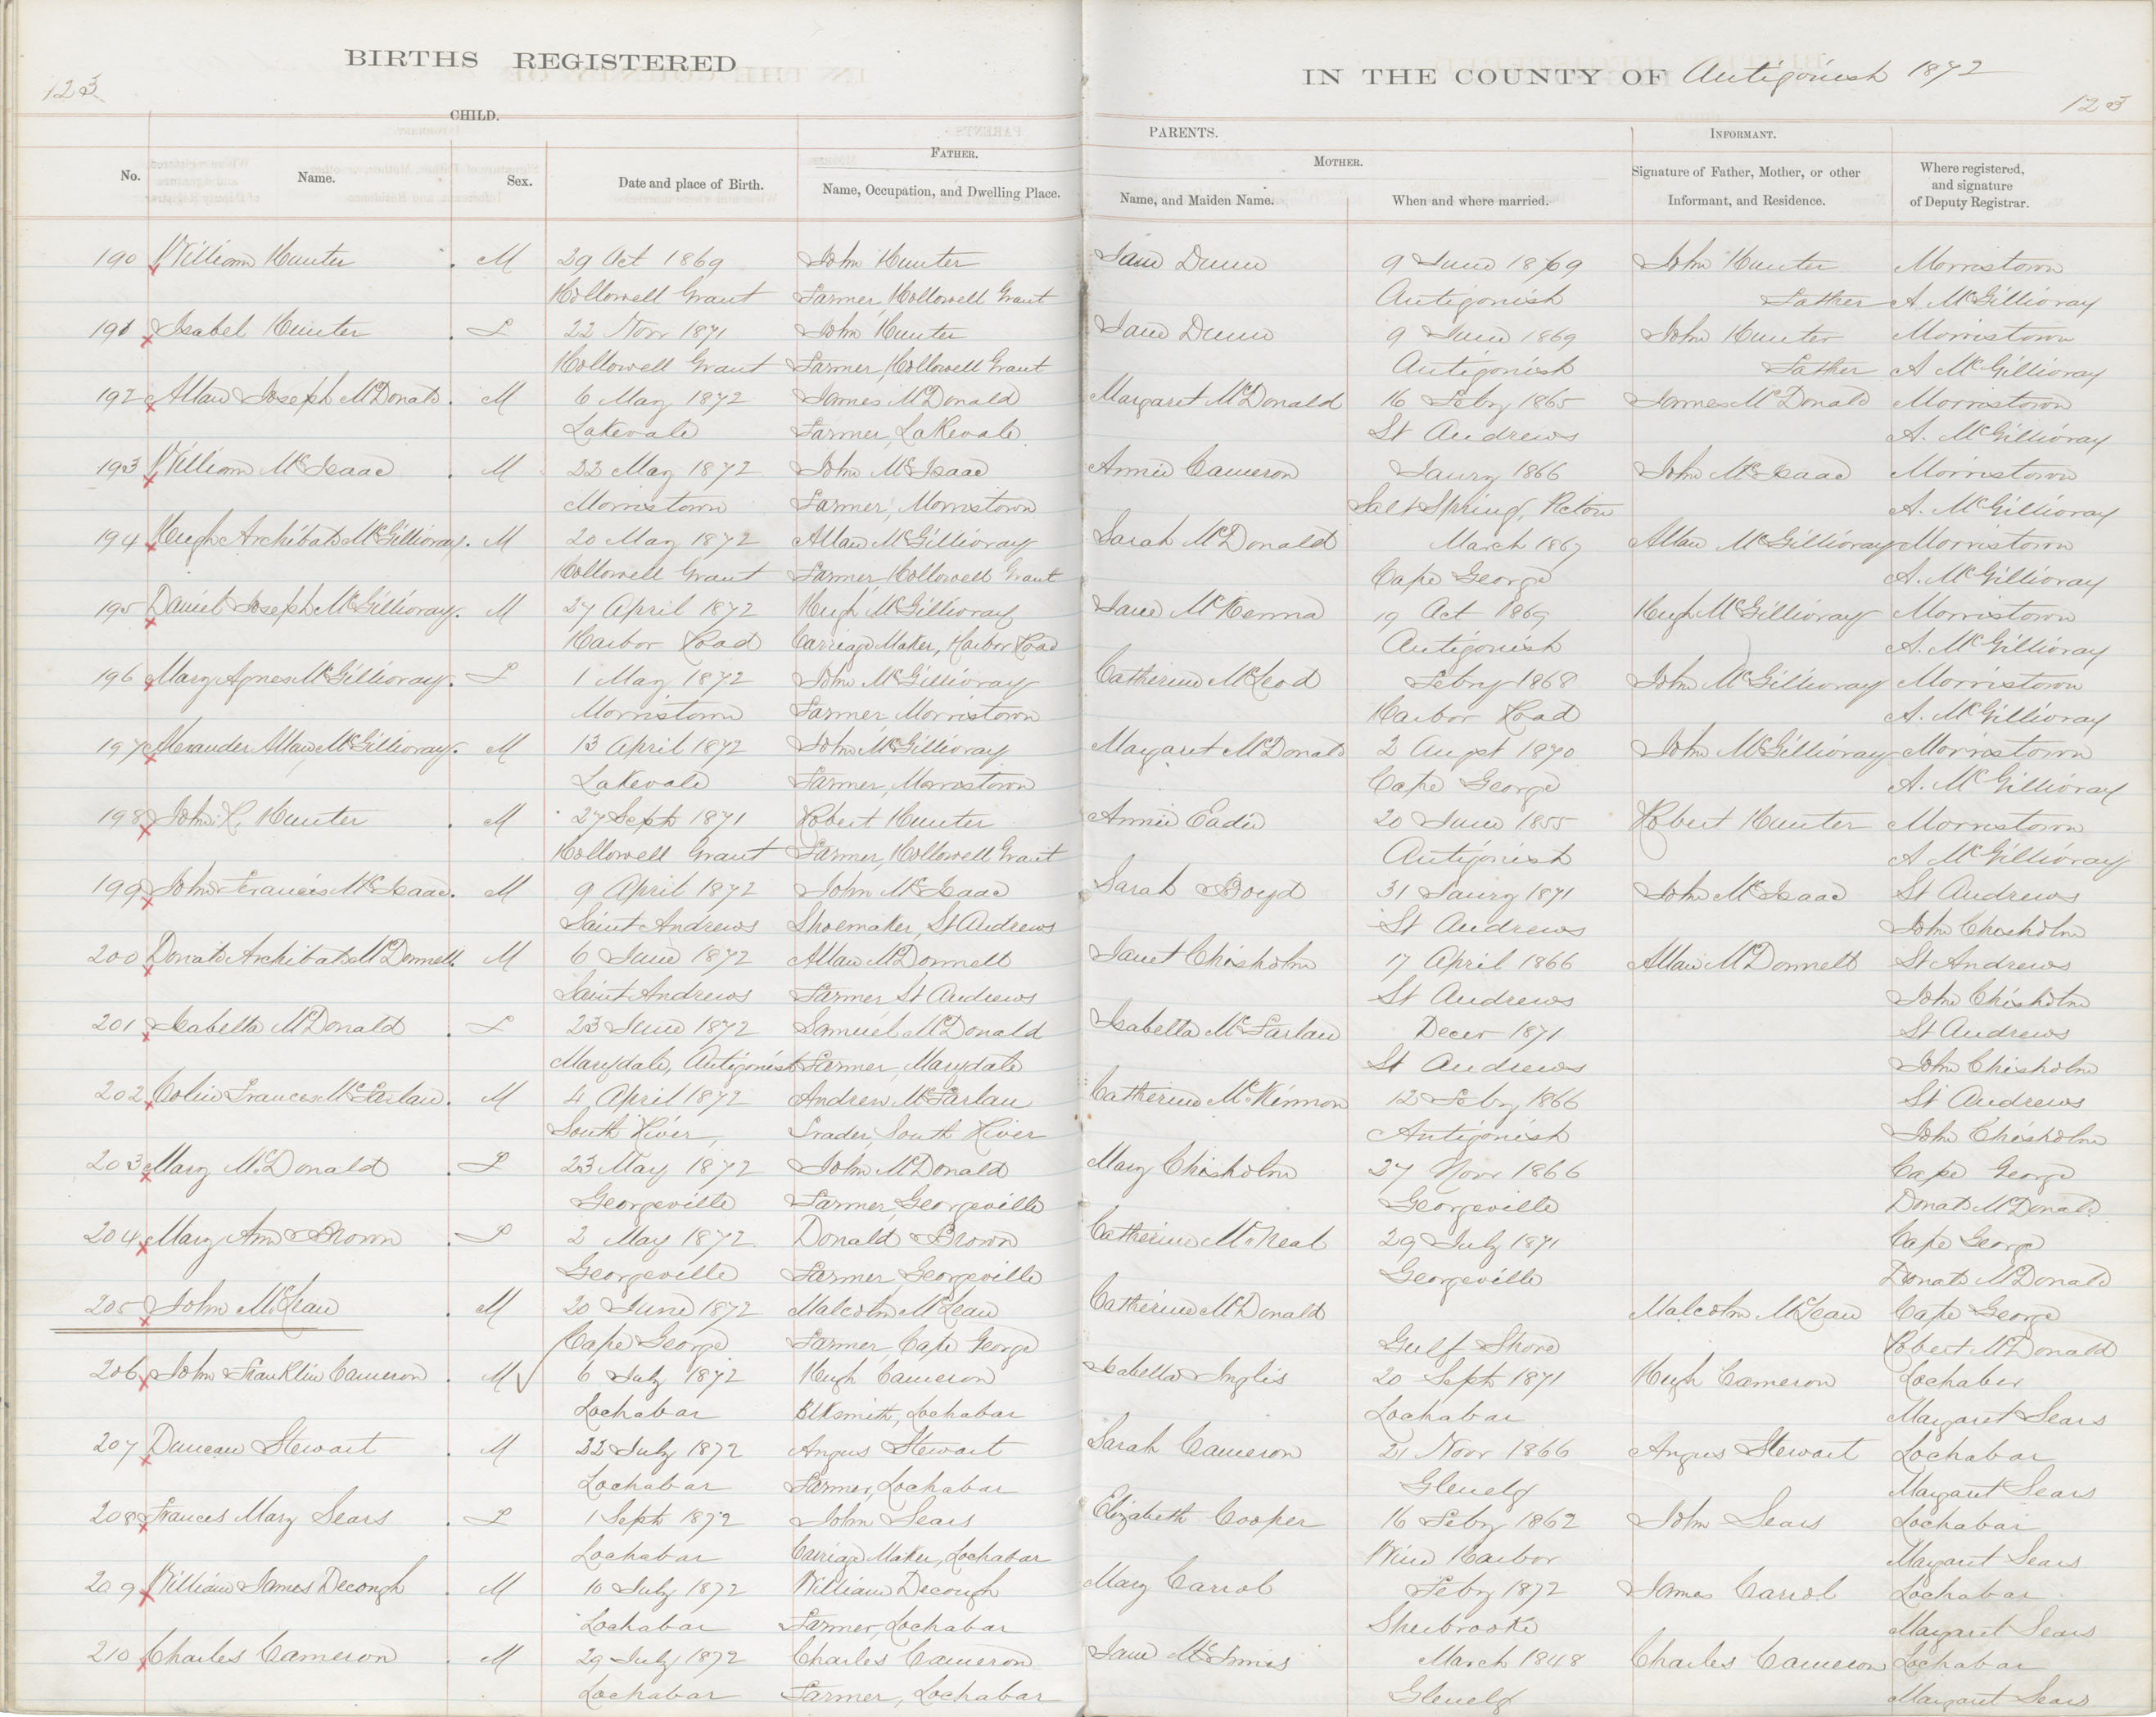 BIRTHS REGISTERED
IN THE COUNTY OF Antigonish 1872
123
123
CHILD.
PARENTS.
INFORMANT.
FATHER.
MOTHER.
No.
Name.
Sex.
Date and place of Birth.
Name, Occupation, and Dwelling Place.
Name, and Maiden Name.
When and where married.
Signature of Father, Mother, or other
Informant, and Residence.
Where registered,
and signature
of Deputy Registrar.
190 William Hunter . M 29 Oct 1869 John Hunter Jane Dunn 9 June 1869 John Hunter Morristown
Hollowell Grant Farmer, Hollowell Grant Antigonish Father A. McGillivray
191 Isabel Hunter . F 22 Novr 1871 John Hunter Jane Dunn 9 June 1869 John Hunter Morristown
Hollowell Grant Farmer, Hollowell Grant Antigonish Father A McGillivray
192 Allan Joseph McDonald . M 6 May 1872 James McDonald Margaret McDonald 16 Feby 1865 James McDonald Morristown
Lakevale Farmer, Lakevale St Andrews A. McGillivray
193 William McIsaac . M 22 May 1872 John McIsaac Annie Cameron Jaury 1866 John McIsaac Morristown
Morristown Farmer, Morristown Salt Spring, Pictou A. McGillivray
194 Hugh Archibald McGillivray . M 20 May 1872 Allan McGillivray Sarah McDonald March 1867 Allan McGillivray Morristown
Hollowell Grant Farmer Hollowell Grant Cape George A. McGillivray
195 Daniel Joseph McGillivray . M 27 April 1872 Hugh McGillivray Jane McKenna 19 Oct 1869 Hugh McGillivray Morristown
Harbor Road Carriage Maker, Harbor Road Antigonish A. McGillivray
196 Mary Agnes McGillivray . F 1 May 1872 John McGillivray Catherine McLeod Febry 1868 John McGillivray Morristown
Morristown Farmer, Morristown Harbor Road A. McGillivray
197 Alexander Allan McGillivray . M 13 April 1872 John McGillivray Margaret McDonald 2 Augst 1870 John McGillivray Morristown
Lakevale Farmer, Morristown Cape George A. McGillivray
198 John R. Hunter . M 27 Sept 1871 Robert Hunter Annie Eadie 20 June 1855 Robert Hunter Morristown
Hollowell Grant Farmer, Hollowell Grant Antigonish A McGillivray
199 John Francis McIsaac . M 9 April 1872 John McIsaac Sarah Boyd 31 Jaury 1871 John McIsaac St Andrews
Saint Andrews Shoemaker, St Andrews St Andrews John Chisholm
200 Donald Archibald McDonnell . M 6 June 1872 Allan McDonnell Janet Chisholm 17 April 1866 Allan McDonnell St Andrews
Saint Andrews Farmer St Andrews St Andrews John Chisholm
201 Isabella McDonald . F 23 June 1872 Samuel McDonald Isabella McFarlan Decer 1871 St Andrews
Marydale, Antigonish Farmer, Marydale St Andrews John Chisholm
202 Colin Frances McFarlan . M 4 April 1872 Andrew McFarlan Catherine McKinnon 12 Feby 1866 St Andrews
South River, Trader, South River Antigonish John Chisholm
203 Mary McDonald . F 23 May 1872 John McDonald Mary Chisholm 27 Novr 1866 Cape George
Georgeville Farmer, Georgeville Georgeville Donald McDonald
204 Mary Ann Brown . F 2 May 1872 Donald Brown Catherine McNeal 29 July 1871 Cape George
Georgeville Farmer, Georgeville Georgeville Donald McDonald
205 John McLean . M 20 June 1872 Malcolm McLean Catherine McDonald Malcolm McLean Cape George
Cape George Farmer, Cape George Gulf Shore Robert McDonald
206 John Franklin Cameron . M 6 July 1872 Hugh Cameron Isabella Inglis 20 Sept 1871 Hugh Cameron Lochaber
Lochabar Blksmith, Lochabar Lochabar Margaret Sears
207 Duncan Stewart . M 22 July 1872 Angus Stewart Sarah Cameron 21 Novr 1866 Angus Stewart Lochabar
Lochabar Farmer, Lochabar Glenelg Margaret Sears
208 Frances Mary Sears . F 1 Sept 1872 John Sears Elizabeth Cooper 16 Feby 1862 John Sears Lochabar
Lochabar Carriage Maker, Lochabar Wine Harbor Margaret Sears
209 William James Decongh . M 10 July 1872 William Decongh Mary Carrol Feby 1872 James Carrol Lochabar
Lochabar Farmer, Lochabar Sherbrooke Margaret Sears
210 Charles Cameron . M 29 July 1872 Charles Cameron Jane McInnis March 1848 Charles Cameron Lochabar
Lochabar Farmer, Lochabar Glenelg Margaret Sears